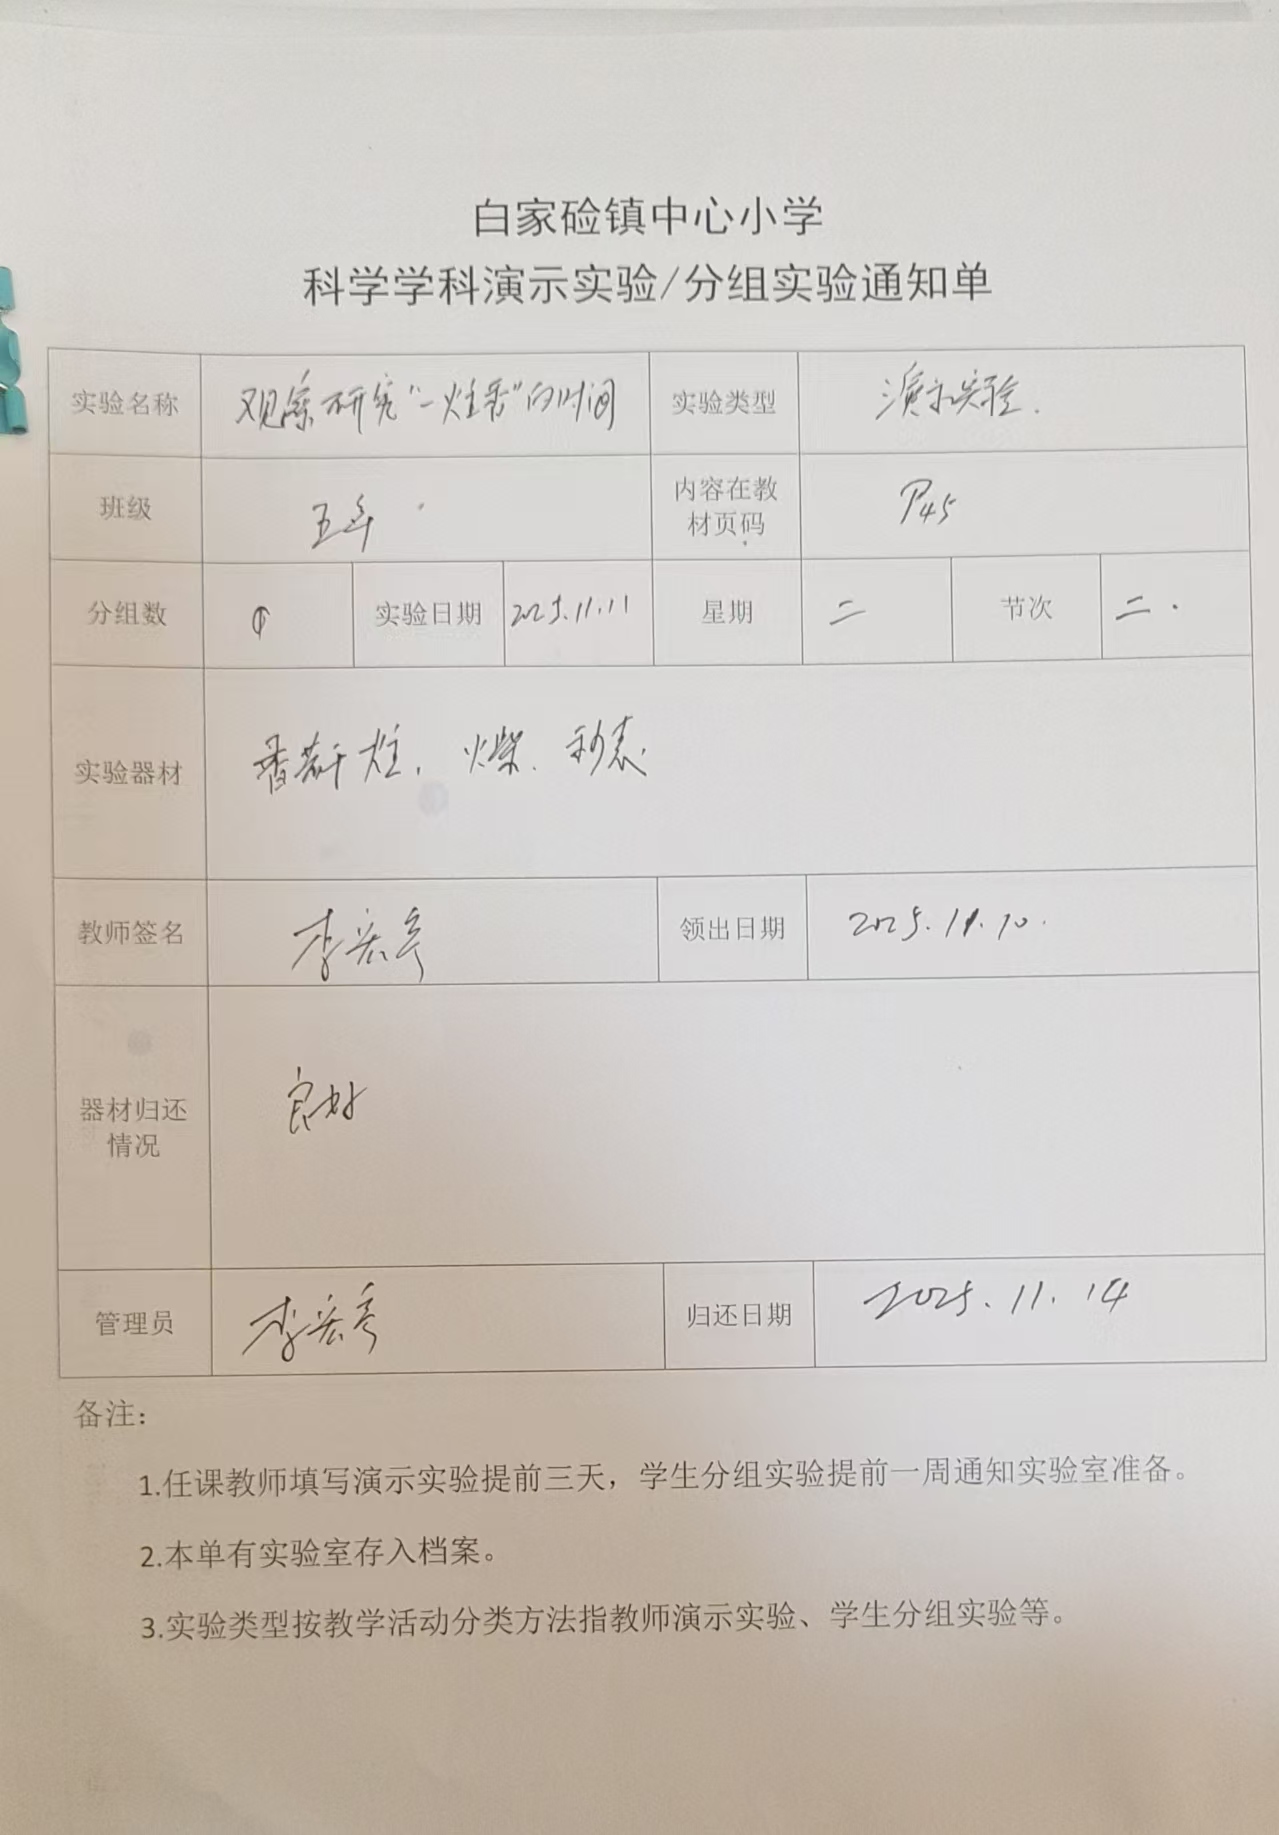 白家硷镇中心小学
科学学科演示实验/分组实验通知单
实验名称 观察研究“一炷香”的时间 实验类型 演示实验.
班级 五年 内容在教材页码 P45
分组数 实验日期 2025.11.11 星期 二 节次 二.
实验器材 香若干炷, 火柴、秒表.
教师签名 李宏亮 领出日期 2025.11.10.
器材归还情况 良好
管理员 李宏亮 归还日期 2025.11.14
备注:
1.任课教师填写演示实验提前三天，学生分组实验提前一周通知实验室准备。
2.本单有实验室存入档案。
3.实验类型按教学活动分类方法指教师演示实验、学生分组实验等。